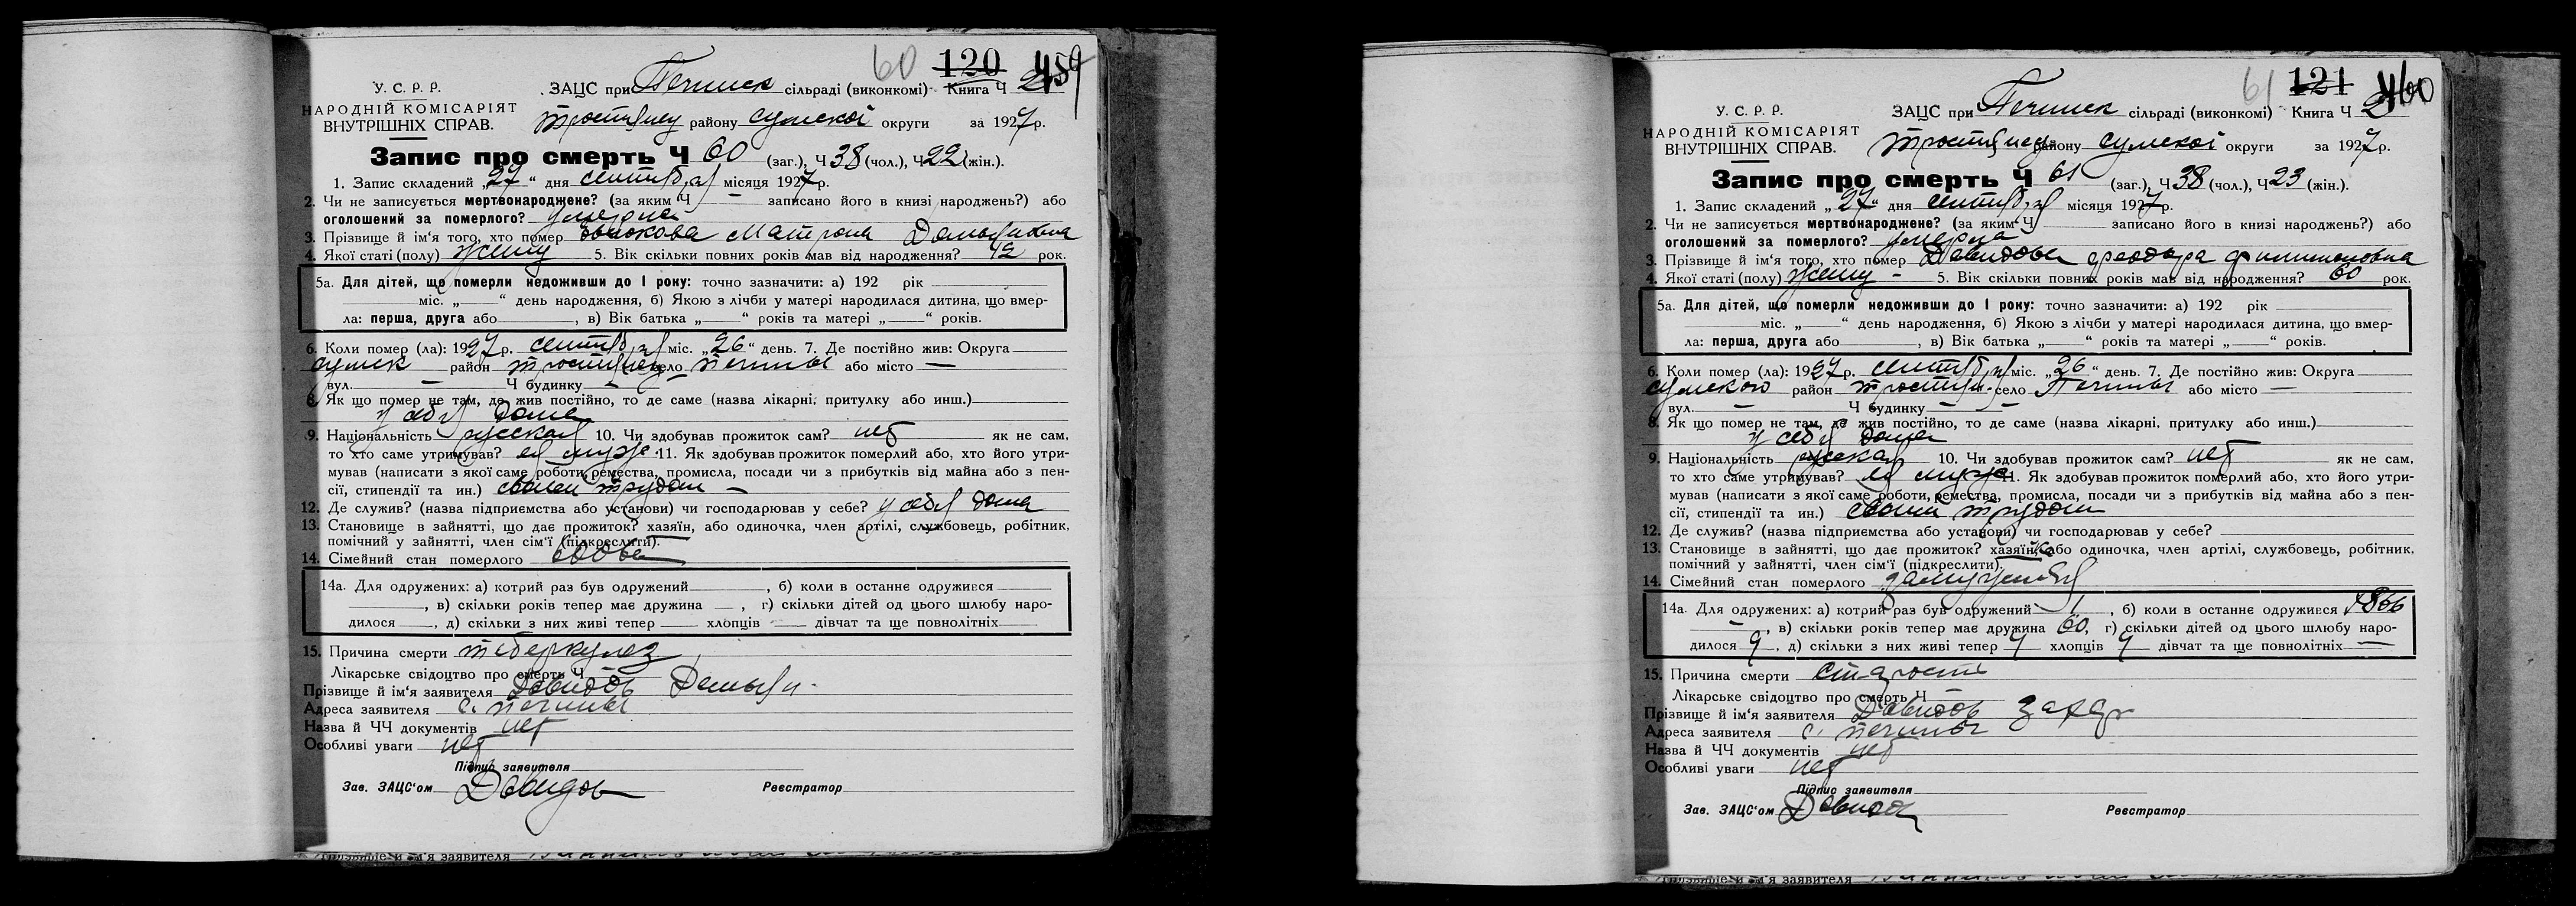 60 120 459
У. С. Р. Р.
НАРОДНІЙ КОМІСАРІЯТ
ВНУТРІШНІХ СПРАВ.
ЗАЦС при Печинск сільраді (виконкомі) Книга Ч 2
Тростянец району Сумской округи за 1927 р.
Запис про смерть Ч 60 (заг.), Ч 38 (чол.), Ч 22 (жін.).
1. Запис складений „27“ дня сентября місяця 1927 р.
2. Чи не записується мертвонароджене? (за яким Ч — записано його в книзі народжень?) або
оголошений за померлого? умерла
3. Прізвище й ім‘я того, хто помер Матрона
4. Якої статі (полу) женщ 5. Вік скільки повних років мав від народження? 42 рок.
5а. Для дітей, що померли недоживши до І року: точно зазначити: а) 192 рік
міс. „ “ день народження, б) Якою з лічби у матері народилася дитина, що вмер-
ла: перша, друга або , в) Вік батька „ “ років та матері „ “ років.
6. Коли помер (ла): 1927 р. сентября міс. „26“ день. 7. Де постійно жив: Округа
Сумск район Тростянец село Печины або місто —
вул. — Ч будинку —
8. Як що помер не там, де жив постійно, то де саме (назва лікарні, притулку або инш.)
у себя дома
9. Національність русская 10. Чи здобував прожиток сам? нет як не сам,
то хто саме утримував? ея муж 11. Як здобував прожиток померлий або, хто його утри-
мував (написати з якої саме роботи, ремества, промисла, посади чи з прибутків від майна або з пен-
сії, стипендії та ин.) своим трудом —
12. Де служив? (назва підприємства або установи) чи господарював у себе? у себя дома
13. Становище в зайнятті, що дає прожиток? хазяїн, або одиночка, член артілі, службовець, робітник,
помічний у зайнятті, член сім‘ї (підкреслити).
14. Сімейний стан померлого вдова
14а. Для одружених: а) котрий раз був одружений , б) коли в останнє одружився
, в) скільки років тепер має дружина — , г) скільки дітей од цього шлюбу наро-
дилося , д) скільки з них живі тепер хлопців дівчат та ще повнолітніх
15. Причина смерти туберкулез
Лікарське свідоцтво про смерть Ч —
Прізвище й ім‘я заявителя Давидов Демьян
Адреса заявителя с. Печины
Назва й ЧЧ документів нет
Особливі уваги нет
Підпис заявителя
Зав. ЗАЦС‘ом Давидов Реєстратор
61 121 460
У. С. Р. Р.
НАРОДНІЙ КОМІСАРІЯТ
ВНУТРІШНІХ СПРАВ.
ЗАЦС при Печинск сільраді (виконкомі) Книга Ч 2
Тростянец району Сумской округи за 1927 р.
Запис про смерть Ч 61 (заг.), Ч 38 (чол.), Ч 23 (жін.).
1. Запис складений „27“ дня сентября місяця 1927 р.
2. Чи не записується мертвонароджене? (за яким Ч записано його в книзі народжень?) або
оголошений за померлого? умерла
3. Прізвище й ім‘я того, хто помер Давидова Феодора Филимоновна
4. Якої статі (полу) женщ - 5. Вік скільки повних років мав від народження? 60 рок.
5а. Для дітей, що померли недоживши до І року: точно зазначити: а) 192 рік
міс. „ “ день народження, б) Якою з лічби у матері народилася дитина, що вмер-
ла: перша, друга або , в) Вік батька „ “ років та матері „ “ років.
6. Коли помер (ла): 1927 р. сентября міс. „26“ день. 7. Де постійно жив: Округа
Сумского район Тростян. село Печины або місто —
вул. — Ч будинку —
8. Як що помер не там, де жив постійно, то де саме (назва лікарні, притулку або инш.)
у себя дома
9. Національність русская 10. Чи здобував прожиток сам? нет як не сам,
то хто саме утримував? ея муж 11. Як здобував прожиток померлий або, хто його утри-
мував (написати з якої саме роботи, ремества, промисла, посади чи з прибутків від майна або з пен-
сії, стипендії та ин.) своим трудом
12. Де служив? (назва підприємства або установи) чи господарював у себе?
13. Становище в зайнятті, що дає прожиток? хазяїн, або одиночка, член артілі, службовець, робітник,
помічний у зайнятті, член сім‘ї (підкреслити).
14. Сімейний стан померлого замужняя
14а. Для одружених: а) котрий раз був одружений 1 , б) коли в останнє одружився 1866
— , в) скільки років тепер має дружина 60, г) скільки дітей од цього шлюбу наро-
дилося 9, д) скільки з них живі тепер хлопців дівчат та ще повнолітніх —
15. Причина смерти старости
Лікарське свідоцтво про смерть Ч —
Прізвище й ім‘я заявителя Давидов Захар
Адреса заявителя с. Печины
Назва й ЧЧ документів нет
Особливі уваги нет
Підпис заявителя
Зав. ЗАЦС‘ом Давидов Реєстратор